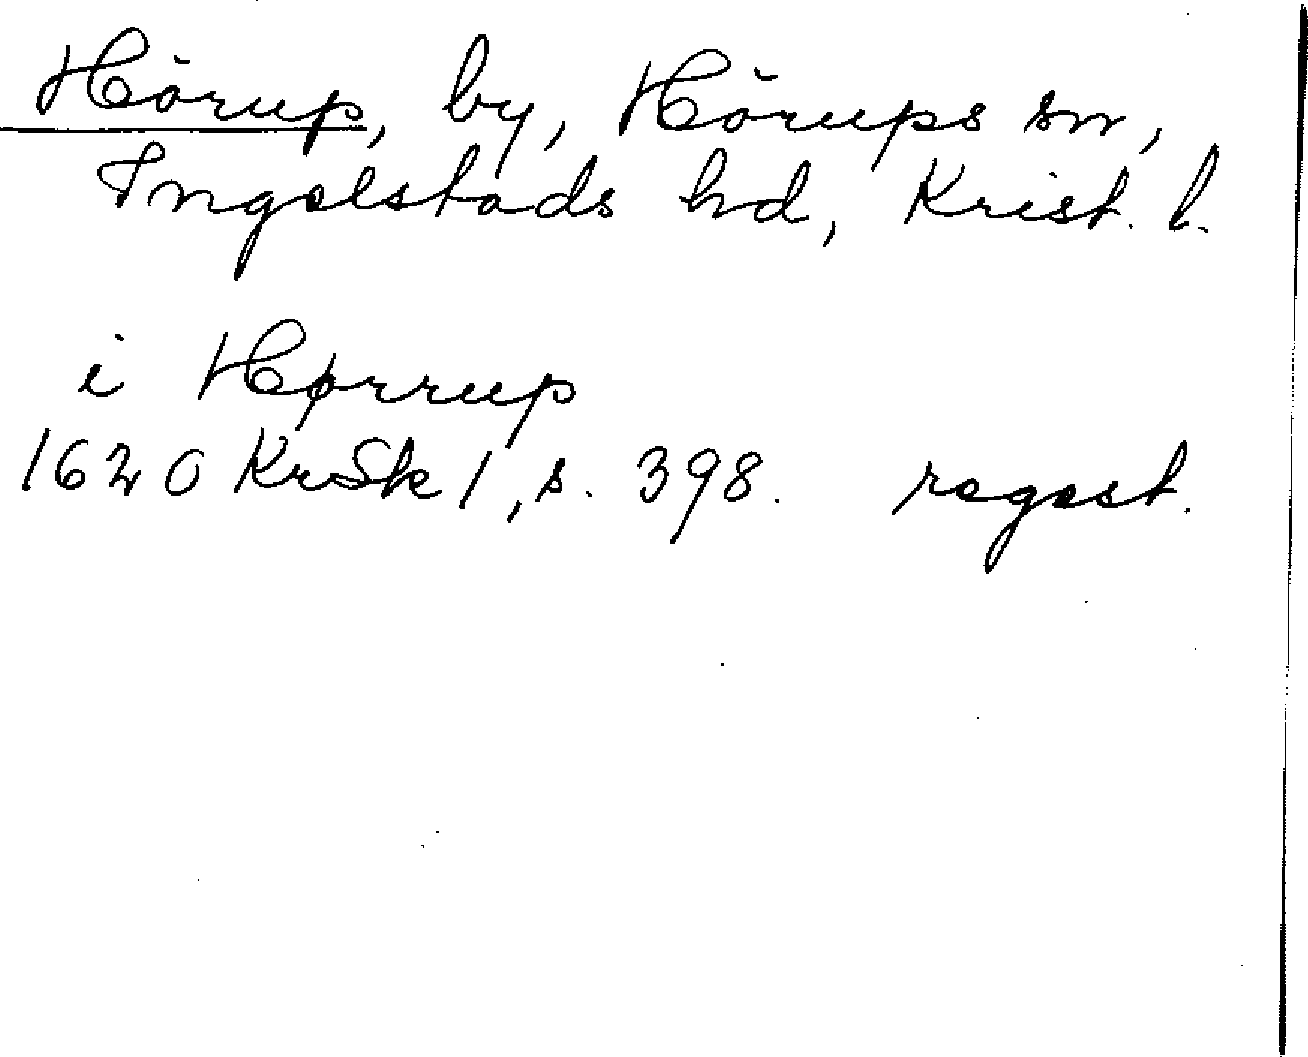 Hörup, by, Hörups sn,
Ingelstads hd, Krist. l.
i Hørrup
1620 KrSk 1, s. 398. regest.